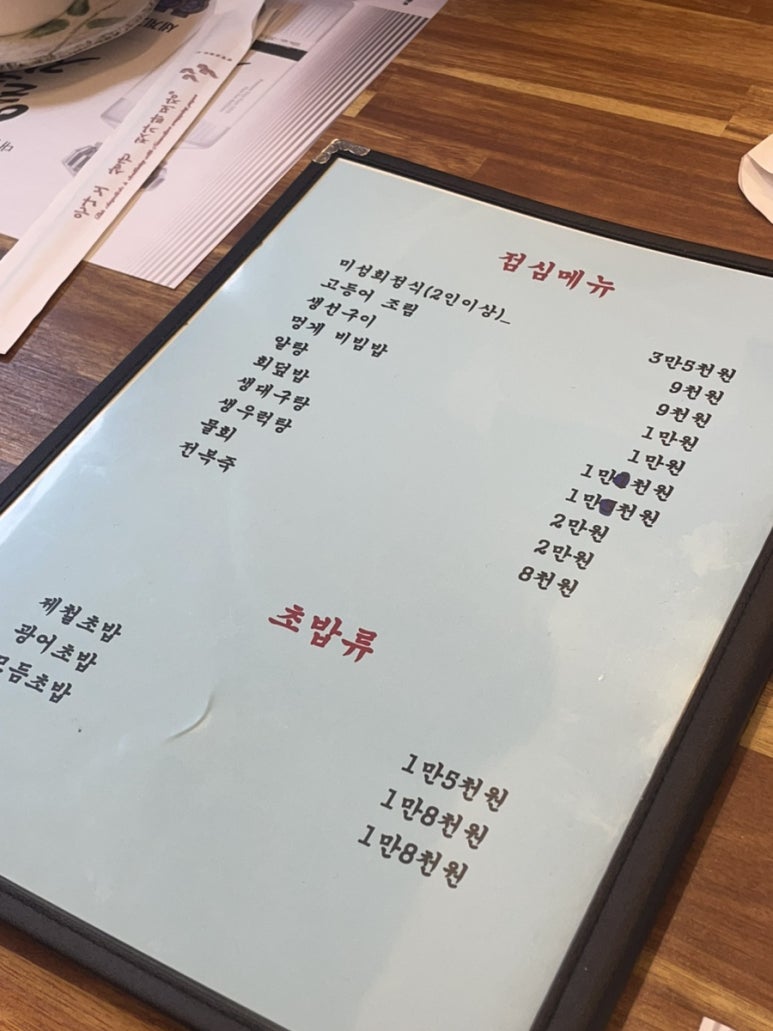 점심메뉴
미섬회정식(2인이상)_ 3만5천원
고등어 조림 9천원
생선구이 9천원
멍게 비빔밥 1만원
알탕 1만원
회덮밥 1만 천원
생대구탕 1만 천원
생우럭탕 2만원
물회 2만원
전복죽 8천원
초밥류
제철초밥 1만5천원
광어초밥 1만8천원
모듬초밥 1만8천원